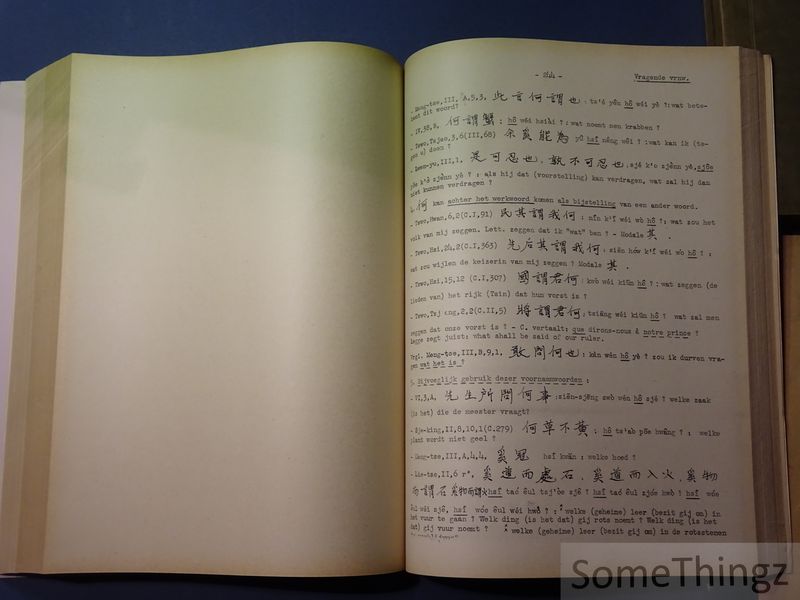 - 244 - Vragende vrnw.
- Meng-tse,III, A,5,3, 此言何謂也: ts'é yên hô wéi yè ?:wat bete-
kent dit woord?
- IV,3B,8, 何謂蟹: hô wéi hsiài ?: wat noemt men krabben ?
- Tswo,Tsjao,3,6(III,68) 余奚能為 yû hsî nêng wêi ? :wat kan ik (te-
gen u) doen ?
- Lwen-yu,III,1, 是可忍也,孰不可忍也:sjé k'o zjènn yè,sjôe
pôe k'ò zjènn yè? : als hij dat (voorstelling) kan verdragen, wat zal hij dan
niet kunnen verdragen ?
4. 何 kan achter het werkwoord komen als bijstelling van een ander woord.
- Tswo,Hwan,6,2(C.I,91) 民其謂我何: mîn k'î wéi wò hô ?: wat zou het
volk van mij zeggen. Lett. zeggen dat ik "wat" ben ? - Modale 其.
- Tswo,Hsi,24,2(C.I,363) 先后其謂我何: siën hów k'î wéi wò hô ? :
wat zou wijlen de keizerin van mij zeggen ? Modale 其.
- Tswo,Hsi,15,12 (C.I,307) 國謂君何: kwò wéi kiün hô ?:wat zeggen (de
lieden van) het rijk (Tsin) dat hun vorst is ?
- Tswo,Tsj ng,2,2(C.II,5) 將謂君何: tsiäng wéi kiün hô ? wat zal men
zeggen dat onze vorst is ? - C. vertaalt: que dirons-nous à notre prince ?
Legge zegt juist: what shall be said of our ruler.
Vrgl. Meng-tse,III,B,9,1, 敢問何也: kàn wén hô yè ? zou ik durven vra-
gen wat het is ?
5. Bijvoeglijk gebruik dezer voornaamwoorden :
- VI,3,A, 先生所問何事:siën-sjëng swò wén hô sjé ? welke zaak
(is het) die de meester vraagt?
- Sje-king,II,8,10,1(C.279) 何草不黃: hô ts'aò pôe hwâng ? : welke
plant wordt niet geel ?
- Meng-tse,III,A,4,4, 奚冠 hsî kwän : welke hoed ?
- Lie-tse,II,6 r°, 奚道而處石,奚道而入火,奚物
而謂石 奚物而謂火 hsî taó êul tsj'òe sjê ? hsî taó êul zjóe hwò ? hsî wóe
êul wéi sjê, hsî wóe êul wéi hwò ? : welke (geheime) leer (bezit gij om) in
het vuur te gaan ? Welk ding (is het dat) gij rots noemt ? Welk ding (is het
dat) gij vuur noemt ? welke (geheime) leer (bezit gij om) in de rotsstenen
SomeThingz